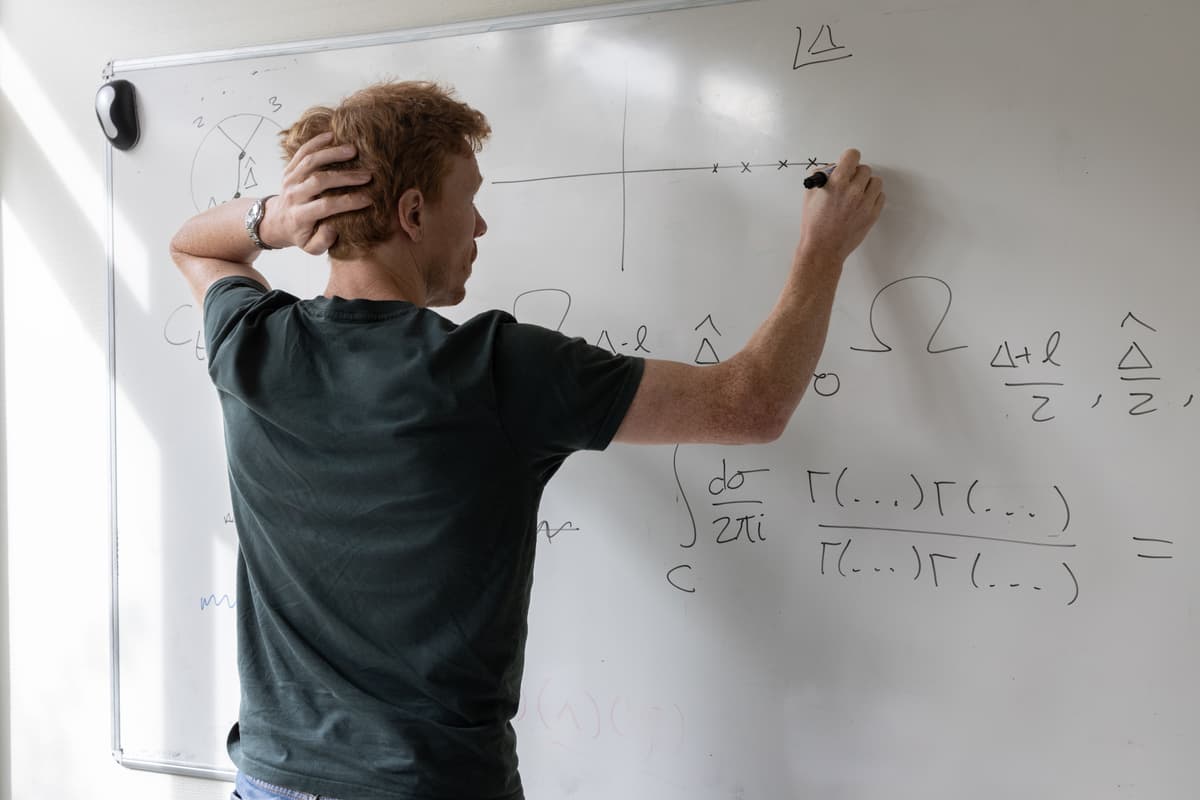 Δ
2 3
Δ̂
x x x x
C Ω Δ-ℓ Δ̂ Ω Δ+ℓ/2 , Δ̂/2 ,
∫_C dσ/2πi Γ(...)Γ(...)/Γ(...)Γ(...) =